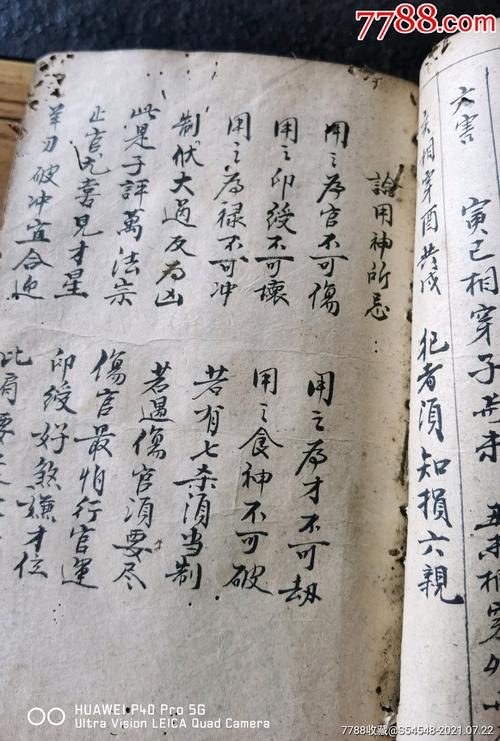 7788.com
六害
寅巳相穿子
相穿酉共戌 犯者須知損六親
論用神所忌
用之為官不可傷 用之為才不可劫
用之印綬不可壞 用之食神不可破
用之為禄不可冲 若有七杀須当制
制伏大過反為凶 若遇傷官須要尽
此是子評萬法宗 傷官最怕行官運
正官尤喜見才星 印綬好煞嫌才位
羊刃破冲宜合迎 比肩要
HUAWEI P40 Pro 5G
Ultra Vision LEICA Quad Camera
7788收藏@S54548-2021.07.22